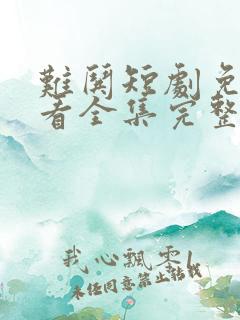 難鬨短劇免
看全集完整
我心飄零
未经同意禁止转载